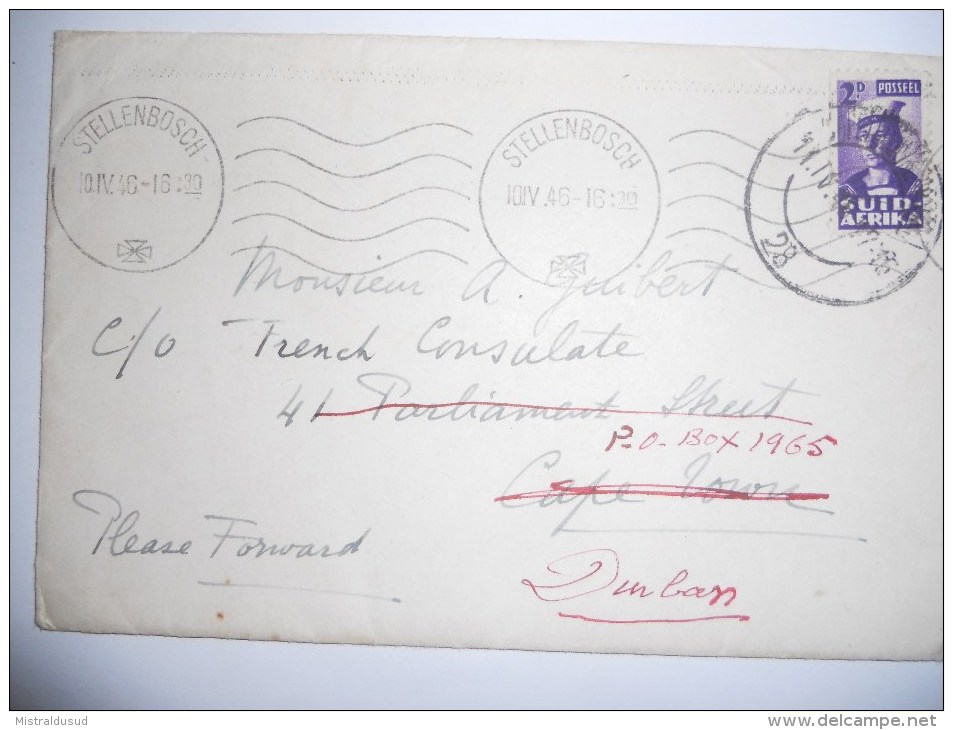 STELLENBOSCH
10.IV.46-16:30
STELLENBOSCH
10.IV.46-16:30
2D POSSEEL
SUID
AFRIKA
11.IV
28
Monsieur A. Guibert
c/o French Consulate
41 Parliament Street
P.O. BOX 1965
Cape Town
Please Forward
Durban
Mistraldusud
delcampe.net